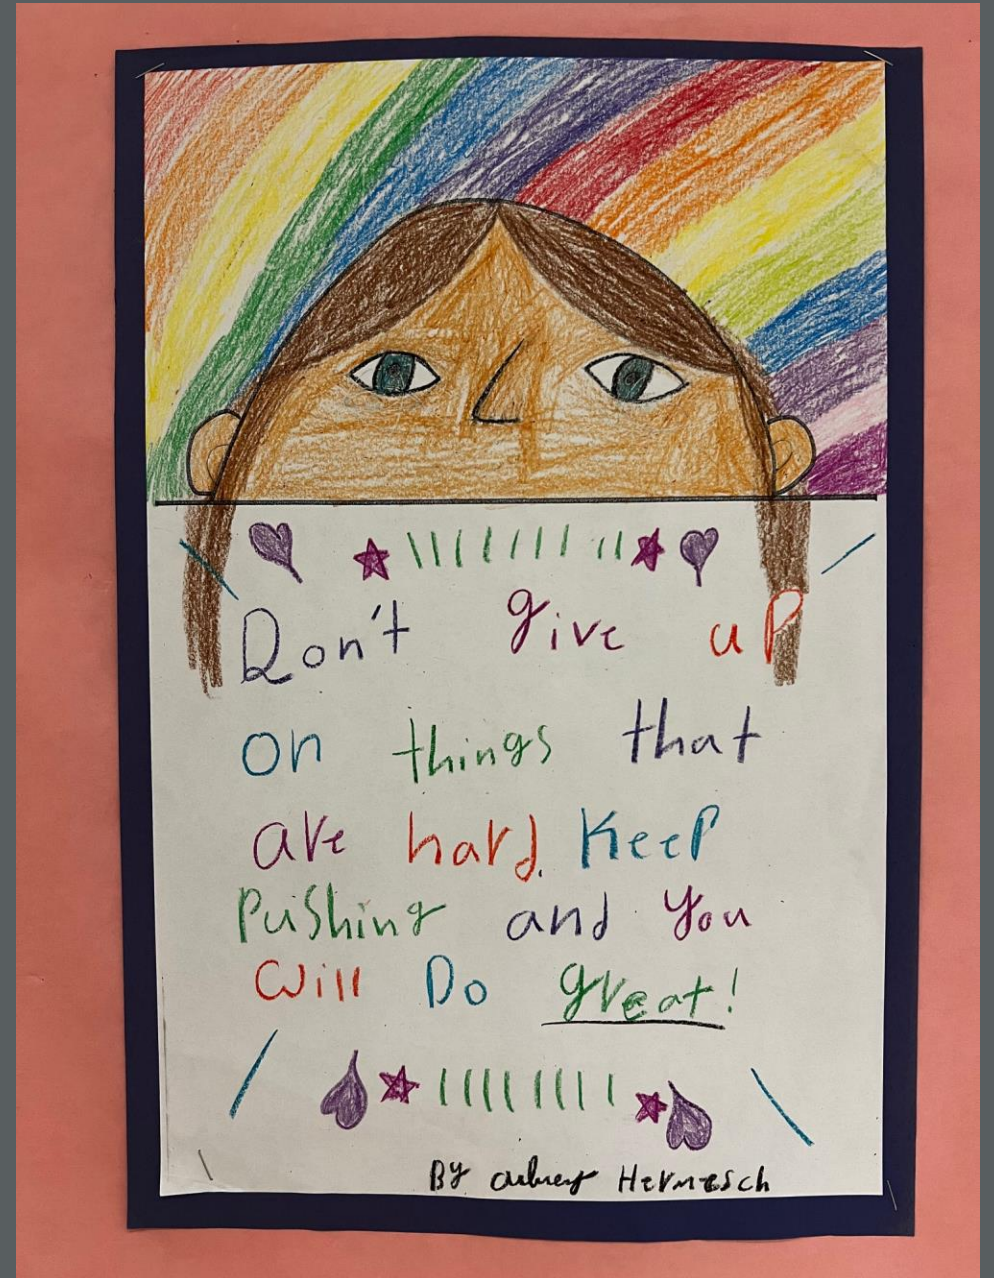 Don't give up
on things that
are hard. Keep
Pushing and You
Will Do great!
By aubrey Hermesch